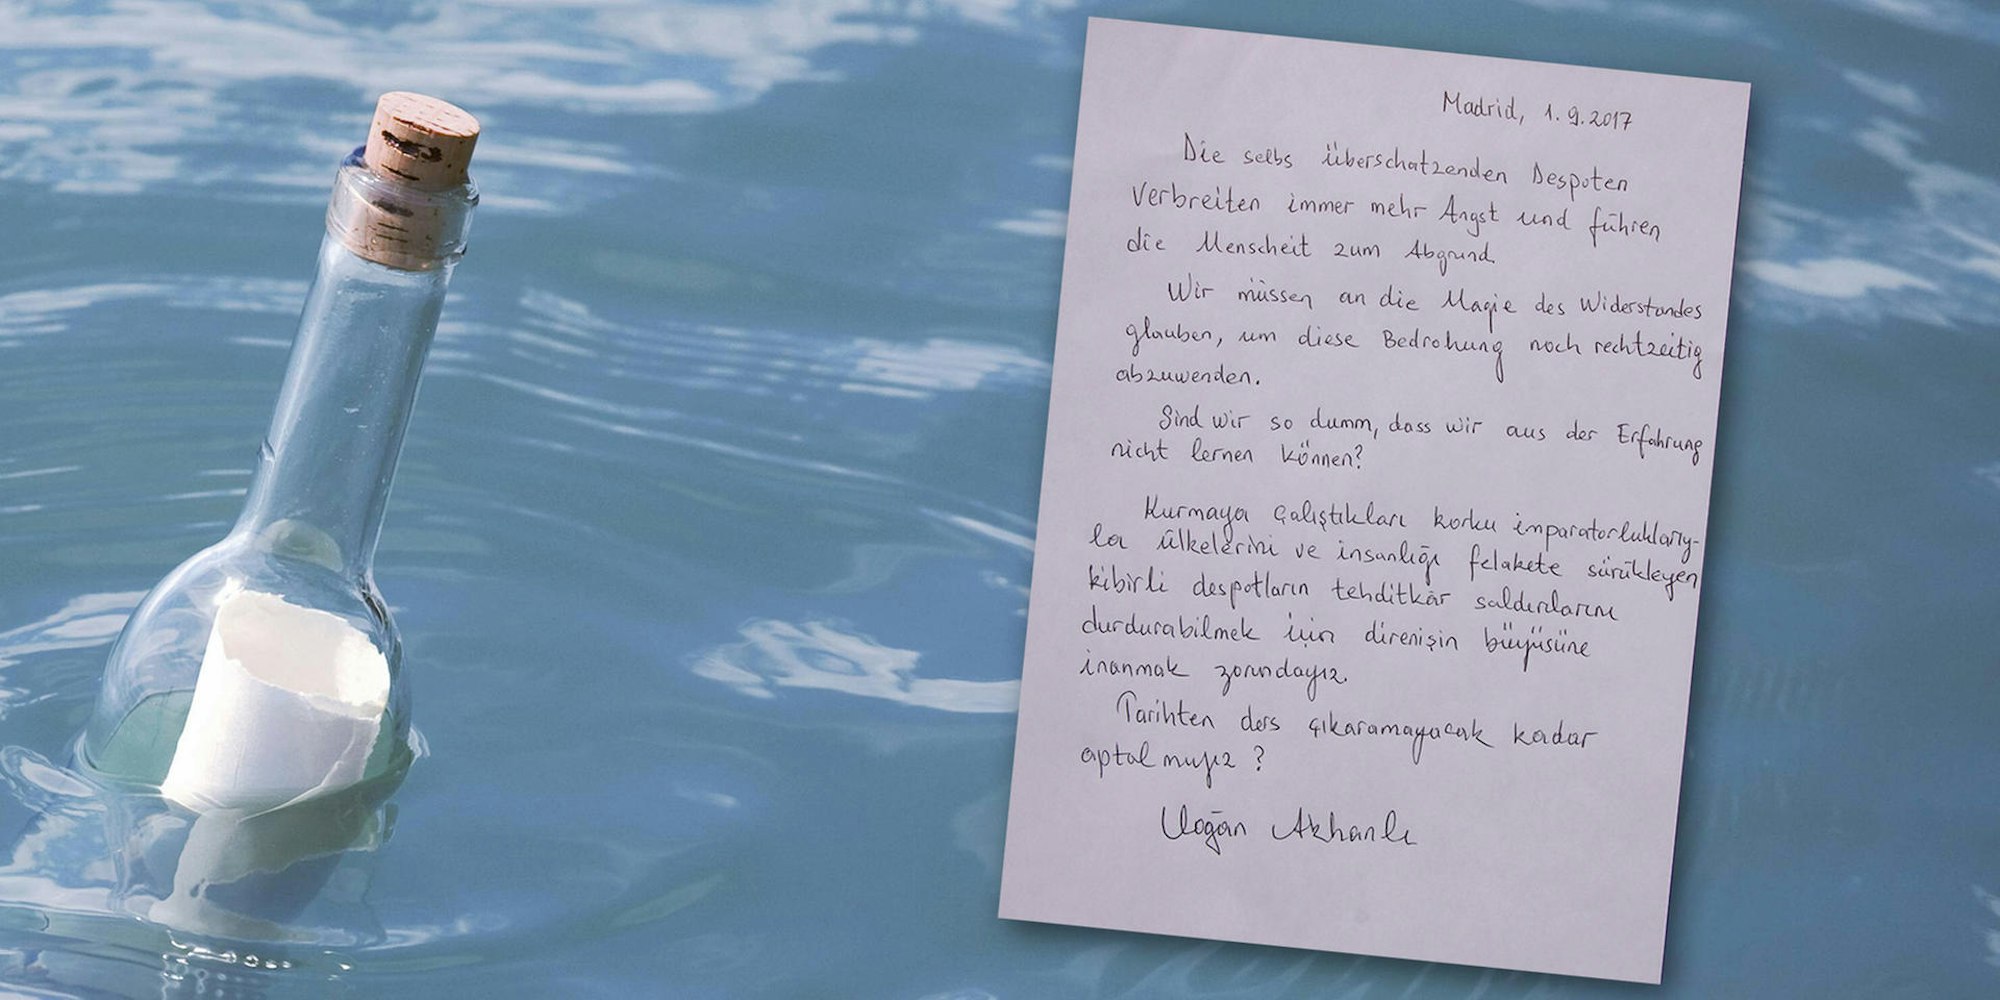 Madrid, 1.9.2017
Die selbs überschatzenden Despoten
verbreiten immer mehr Angst und führen
die Menscheit zum Abgrund.
Wir müssen an die Magie des Widerstandes
glauben, um diese Bedrohung noch rechtzeitig
abzuwenden.
Sind wir so dumm, dass wir aus der Erfahrung
nicht lernen können?
Kurmaya çalıştıkları korku imparatorluklarıy-
la ülkelerini ve insanlığı felakete sürükleyen
kibirli despotların tehditkâr saldırılarını
durdurabilmek için direnişin büyüsüne
inanmak zorundayız.
Tarihten ders çıkaramayacak kadar
aptal mıyız?
Doğan Akhanlı